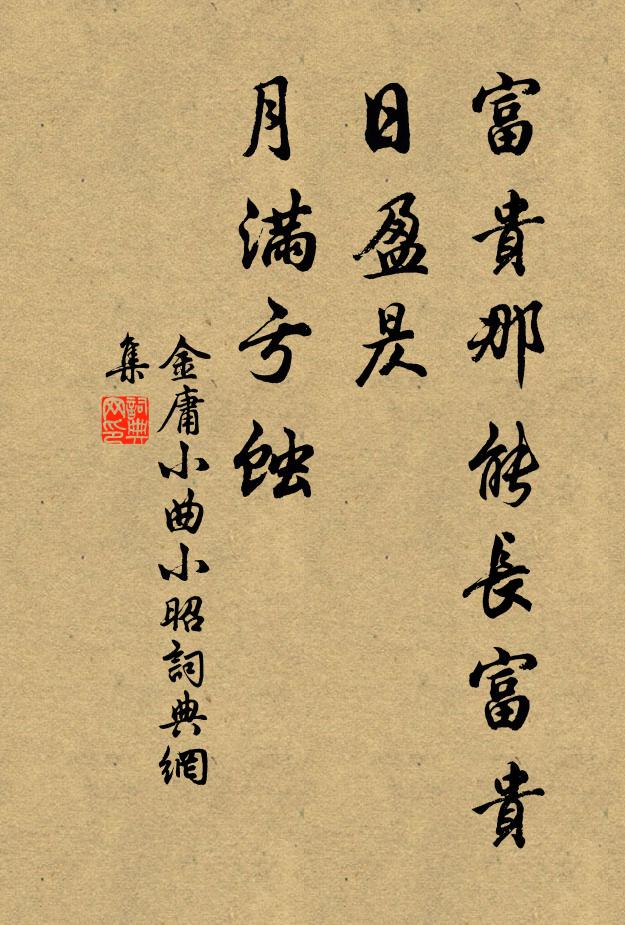 富貴那能長富貴
日盈昃
月滿亏蝕
金庸小曲小昭詞典網
集
詞典
网印